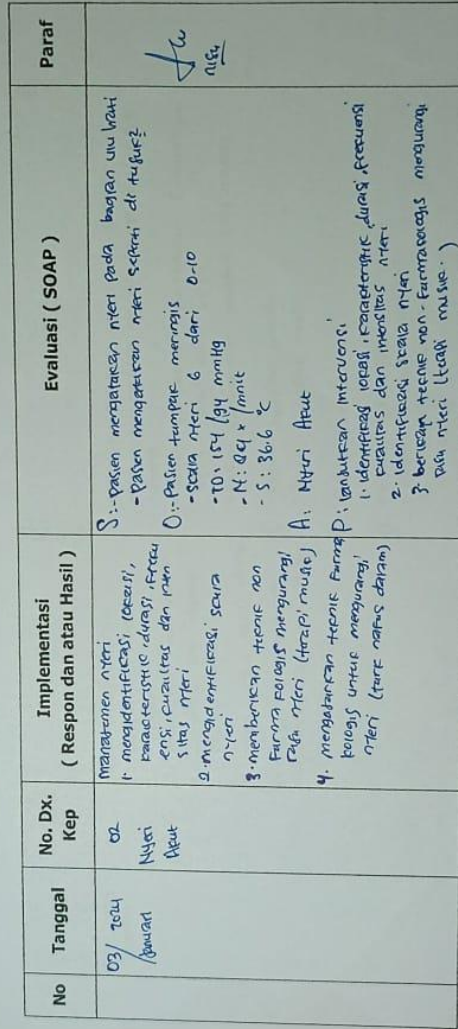 No
Tanggal
No. Dx.
Kep
Implementasi
( Respon dan atau Hasil )
Evaluasi ( SOAP )
Paraf
03/ 2024
/Januari
02
Nyeri
Akut
manajemen nyeri
1. mengidentifikasi lokasi,
karakteristik, durasi, freku
ensi, kualitas dan inten
sitas nyeri
2. mengidentifikasi skala
nyeri
3. memberikan teknik non
Farma kologis mengurangi
rasa nyeri (terapi musik)
4. mengajarkan teknik Farma
kologis untuk mengurangi
nyeri (tarik nafas dalam)
S: - pasien mengatakan nyeri pada bagian ulu hati
- pasien mengatakan nyeri seperti di tusuk2
O: - Pasien tampak meringis
- skala nyeri 6 dari 0-10
- TD: 154 /94 mmHg
- N: 84 x /mnit
- S: 36.6 °C
A: Nyeri Akut
P: Lanjutkan Intervensi
1. identifikasi lokasi, karakteristik, durasi, frekuensi
kualitas dan intensitas nyeri
2. identifikasi skala nyeri
3. berikan teknik non-Farmakologis mengurangi
rasa nyeri (terapi musik.)